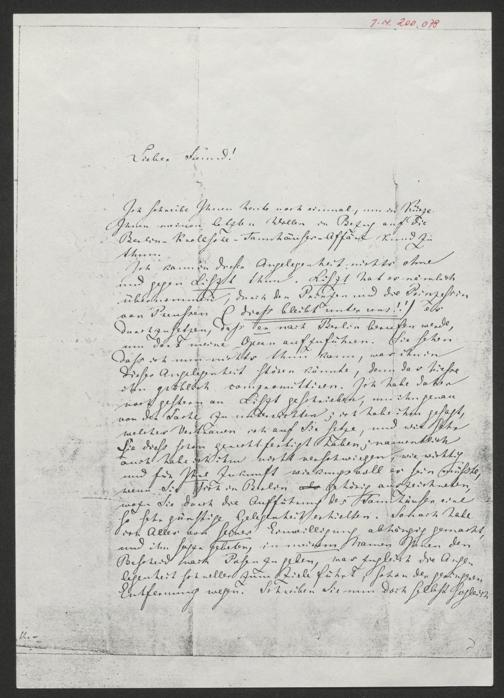 I.N. 200.078
Lieber Freund!
Ich schreibe Ihnen heute noch einmal, um in Kürze
Ihnen meinen letzten Willen in Bezug auf die
Berlin-Krollsche-Tannhäuser-Affäre kund zu
thun.
Ich kann in dieser Angelegenheit nichts ohne
und gegen Liszt thun. Liszt hat es nämlich
übernommen, durch den Prinzen und die Prinzessin
von Preußen (dieß bleibt unter uns!!) es
durchzusetzen, daß er nach Berlin berufen werde,
um dort meine Opern aufzuführen. Sie sehen
daß ich nun nichts thun kann, was ihn in
dieser Angelegenheit stören könnte, denn das hieße
ihn gröblich compromittiren. Ich habe daher
noch gestern an Liszt geschrieben, und ihn genau
von der Sache zu unterrichten; ich habe ihm gesagt,
welches Vertrauen ich auf Sie setze, und wie sehr
Sie dieß schon gerechtfertigt haben; namentlich
auch habe ich ihm nicht verschwiegen, wie wichtig
und für Ihre Zukunft wirkungsvoll es sein müßte,
wenn Sie sich in Berlin gehörig auszeichneten,
wozu Sie durch die Aufführung des Tannhäuser eine
so sehr günstige Gelegenheit erhielten. Somit habe
ich Alles von seiner Einwilligung abhängig gemacht,
und ihn gebeten, in meinem Namen Ihnen den
Bescheid nach Posen zu geben, was zugleich die Ange-
legenheit schneller zum Ziele führt, schon der geringeren
Entfernung wegen. Schreiben Sie nun doch selbst sogleich